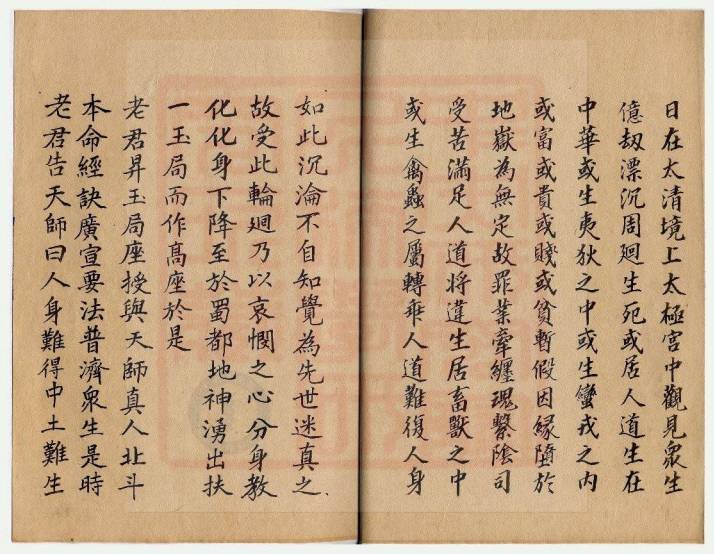 日在太清境上太極宮中觀見衆生
億劫漂沉周廻生死或居人道生在
中華或生夷狄之中或生蠻戎之内
或富或貴或賤或貧暫假因緣墮於
地嶽為無定故罪業牽纏瑰繫陰司
受苦滿足人道将違生居畜獸之中
或生禽蟲之屬轉乖人道難復人身
如此沉淪不自知覺為先世迷真之
故受此輪廻乃以哀憫之心分身教
化化身下降至於蜀都地神湧出扶
一玉局而作髙座於是
老君昇玉局座授與天師真人北斗
本命經訣廣宣要法普濟衆生是時
老君告天師曰人身難得中土難生